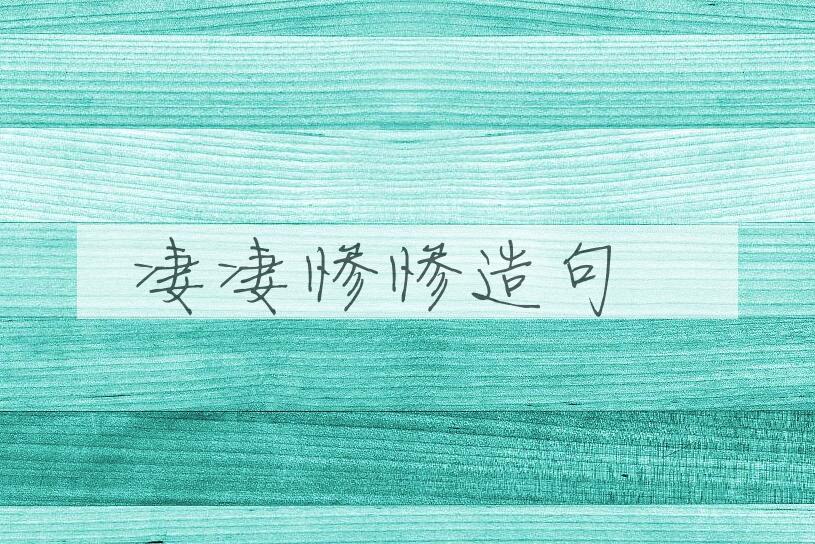 凄凄惨惨造句